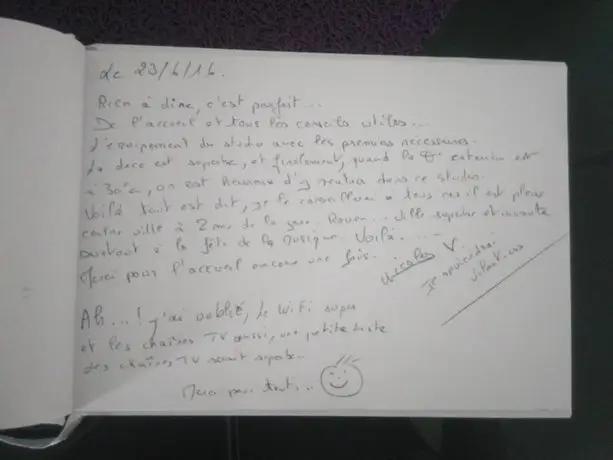 Le 23/6/16.
Rien à dire, c'est parfait...
De l'accueil et tous les conseils utiles...
L'équipement du studio avec les premiers nécessaires.
La deco est superbe, et finalement, quand la T° extérieur est
à 30°c, on est heureux d'y rentrer dans ce studio.
Voilà tout est dit, je le conseillerai à tous car il est plein
centre ville à 2 mn de la gare. Rouen... ville superbe et vivante
surtout à la fête de la musique. Voilà...
Merci pour l'accueil encore une fois.
Nicolas V
Je reviendrai
Ah...! j'ai oublié, le Wifi super
et les chaînes TV aussi, une petite liste
des chaînes TV serait superbe..
Merci pour tout...